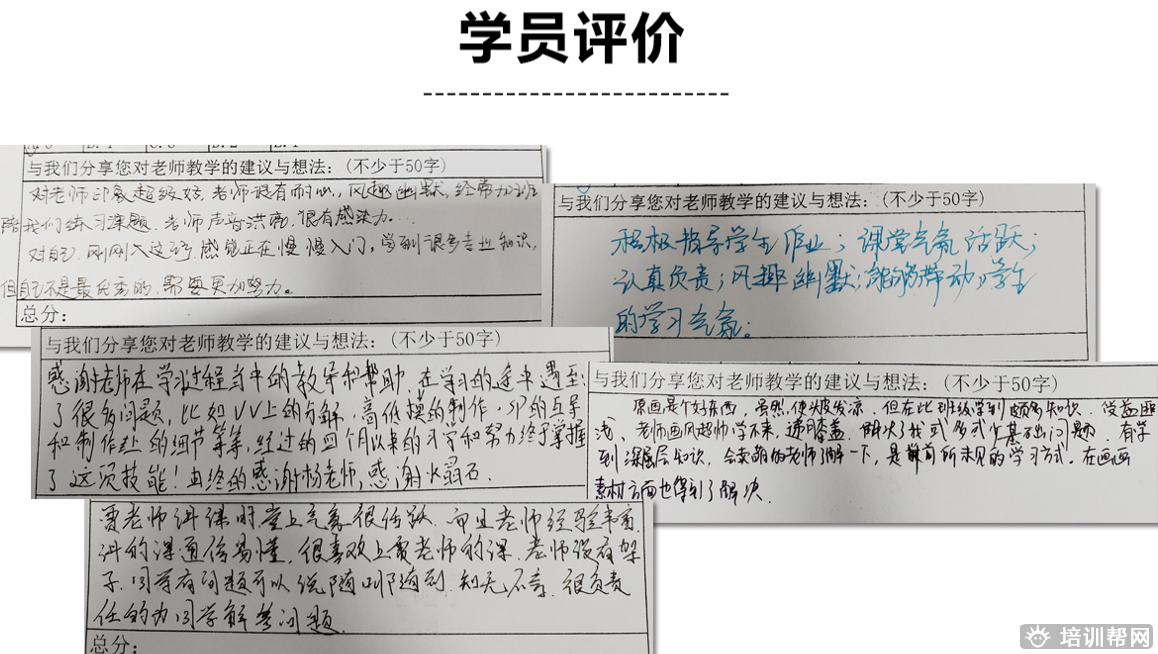 学员评价
与我们分享您对老师教学的建议与想法：(不少于50字)
对老师印象超级好，老师很有耐心，风趣幽默，经常加班
陪我们练习课题．老师声音洪亮．很有感染力...
对自己．刚刚入这行，感觉正在慢慢入门，学到很多专业知识，
但自己不是最优秀的，需要更加努力。
总分：
与我们分享您对老师教学的建议与想法：(不少于50字)
积极指导学生作业；课堂气氛活跃；
认真负责；风趣幽默；能够带动学生
的学习气氛。
与我们分享您对老师教学的建议与想法：(不少于50字)
感谢老师在学习过程当中的教导和帮助，在学习的途中遇到
了很多问题，比如UV上的分解，高低模的制作，SP的烘焙
和制作上的细节等等，经过的四个月以来的学习和努力终于掌握
了这项技能！由终的感谢杨老师，感谢火弱石．
与我们分享您对老师教学的建议与想法：(不少于50字)
原画是个好东西，虽然使头发发凉．但在此班级学到颇多知识．受益匪
浅、老师画风超帅学不来，通用膝盖．解决了我 多 少基础问题．有学
到深层知识． 的老师了解一下，是 前所未见的学习方式．在画画
素材方面也得到了解决．
贾老师讲课时，堂上气氛很活跃．而且老师经验丰富
讲的课通俗易懂，很喜欢上贾老师的课．老师没有架
子．同学有问题可以说随叫随到．知无不言．很负责
任的为同学解答问题．
总分：
培训帮网